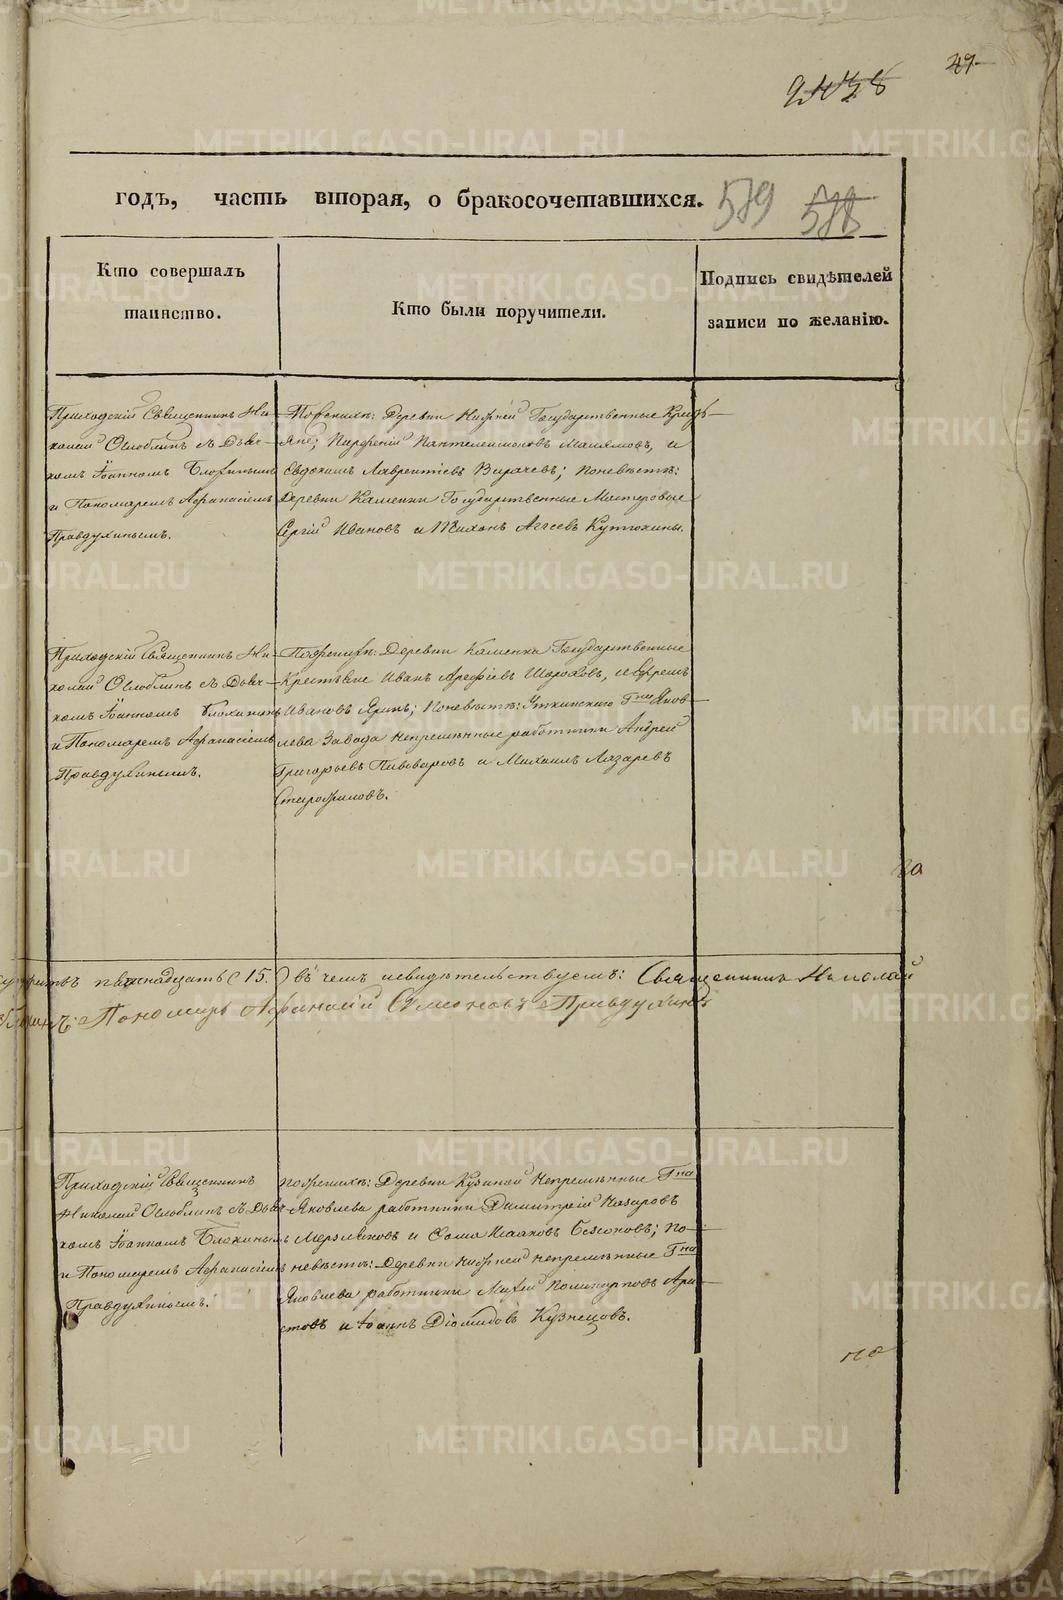 49
годъ, часть вторая, о бракосочетавшихся.
519 518
Кто совершалъ
таинство.
Кто были поручители.
Подпись свидѣтелей
записи по желанію.
Приходскій Священникъ Ни-
колай Оглоблинъ съ Дьяч-
комъ Іоанномъ Блохинымъ
и Пономаремъ Афанасіемъ
Правдухинымъ.
По женихѣ: Деревни Нижней Государственные Кресть-
яне; Парфеній Пантелеимоновъ и
Евдокимъ Лаврентіевъ; по невѣстѣ:
Деревни Каменки Государственные Мастеровые
Сергій Ивановъ и Тихонъ Агѣевъ Кутюхины.
Приходскій Священникъ Ни-
колай Оглоблинъ съ Дьяч-
комъ Іоанномъ Блохинымъ
и Пономаремъ Афанасіемъ
Правдухинымъ.
По женихѣ: Деревни Каменки Государственные
Крестьяне Иванъ Арефіевъ Шороховъ, и Ефремъ
Ивановъ Яринъ; по невѣстѣ: Уткинскаго Гна Яков-
лева Завода непремѣнные работники Андрей
Григорьевъ Пивоваровъ и Михаилъ Лазаревъ
Старожиловъ.
пятнадцать (15.) въ чемъ и свидѣтельствуемъ: Священникъ Николай
Пономарь Афанасій Симеоновъ Правдухинъ
Приходскій Священникъ
Николай Оглоблинъ съ Дьяч-
комъ Іоанномъ Блохинымъ
и Пономаремъ Афанасіемъ
Правдухинымъ.
по женихѣ: Деревни Кузиной непремѣнные Гна
Яковлева работники Димитрій Назаровъ
Мерзляковъ и Фома Исааковъ Безсоновъ; по
невѣстѣ: Деревни Нижней непремѣнные Гна
Яковлева работники Поликарповъ Ари-
стовъ и Іоаннъ Діомидовъ Кузнецовъ.
по
METRIKI.GASO-URAL.RU